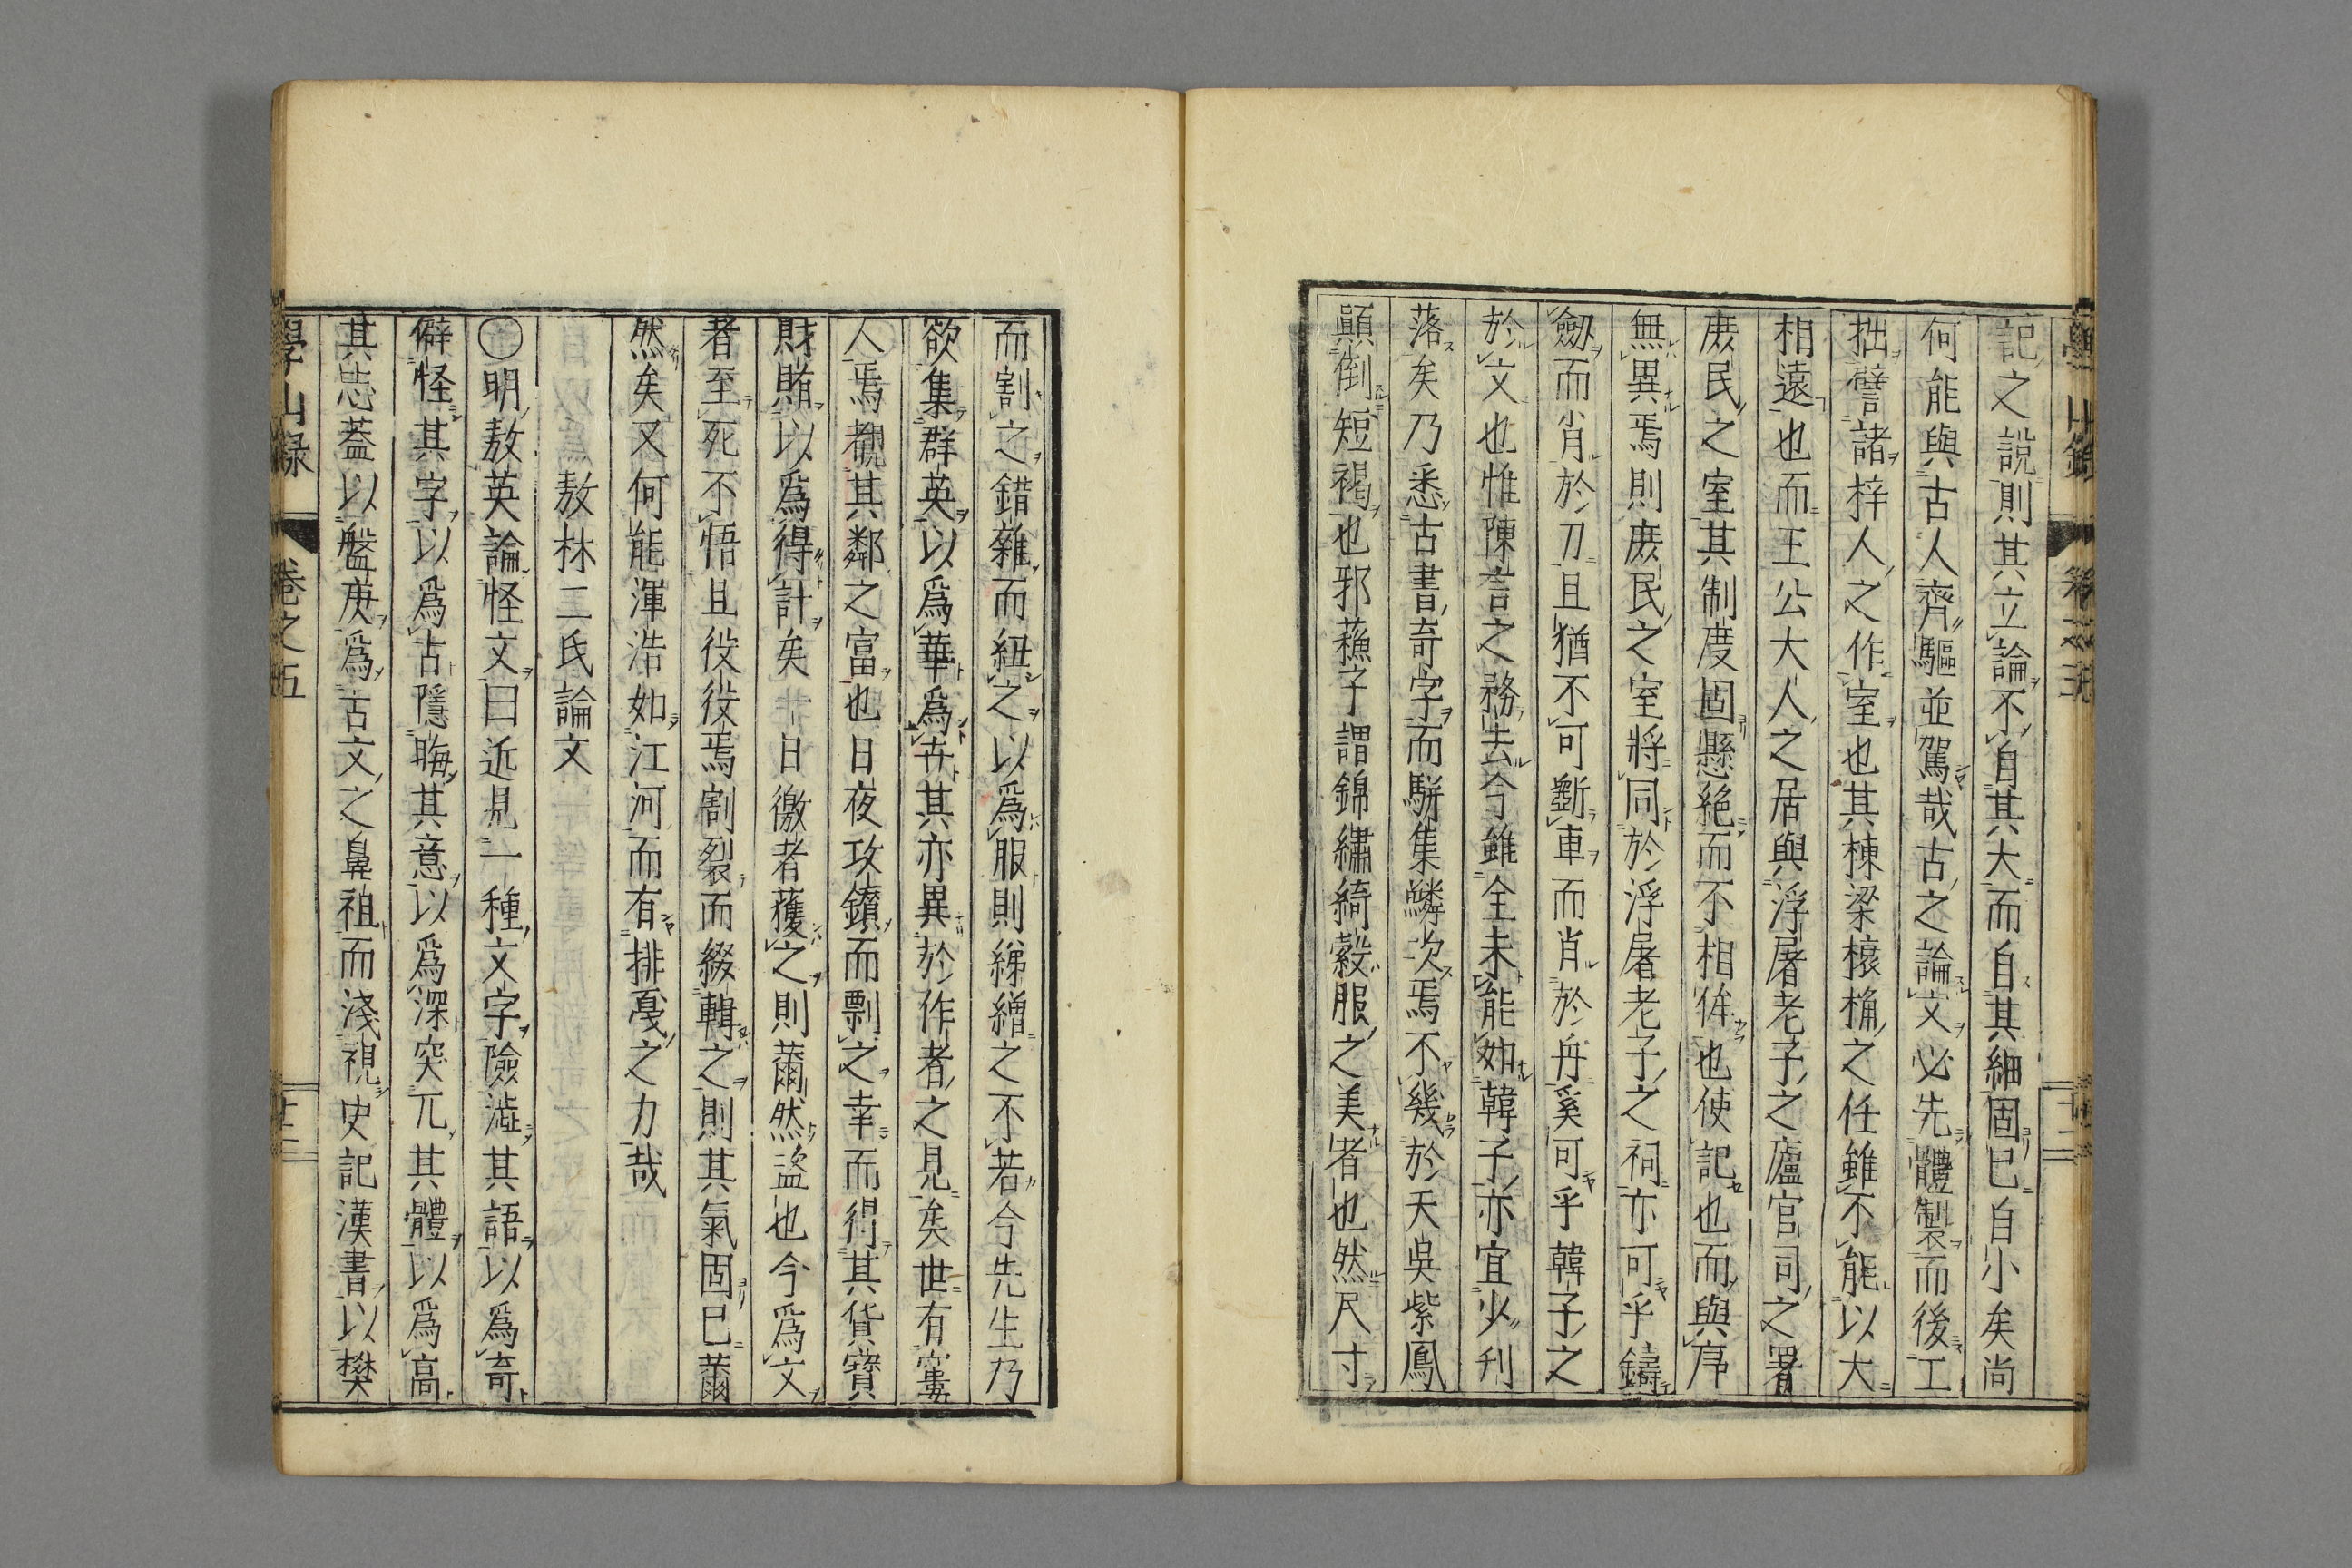 學山錄 卷之五 十二
記之說則其立論不自其大而自其細固已自小矣尚
何能與古人齊驅並駕哉古之論文必先體製而後工
拙譬諸梓人之作室也其棟梁榱桷之任雖不能以大
相遠也而王公大人之居與浮屠老子之廬官司之署
庶民之室其制度固懸絶而不相侔也使記也而與序
無異焉則庶民之室將同於浮屠老子之祠亦可乎鑄
劔而肖於刀且猶不可斵車而肖於舟奚可乎韓子之
於文也惟陳言之務去今雖全未能如韓子亦宜少刋
落矣乃悉古書奇字而駢集鱗次焉不幾於天吳紫鳳
顚倒短褐也邪蘓子謂錦繡綺縠服之美者也然尺寸
而割之錯雜而紐之以爲服則綈繒之不若今先生乃
欲集群英以爲華爲卉其亦異於作者之見矣世有窶
人焉覩其鄰之富也日夜攻鑽而剽之幸而得其貨寶
財賄以爲得計矣一日徼者獲之則薾然盜也今爲文
者至死不悟且役役焉割裂而綴輯之則其氣固已薾
然矣又何能渾浩如江河而有排戞之力哉
敖林二氏論文
○明敖英論怪文曰近見一種文字險澁其語以爲奇
僻怪其字以爲古隱晦其意以爲深突兀其體以爲高
其忠蓋以盤庚爲古文之鼻祖而淺視史記漢書以樊
學山錄 卷之五 十三